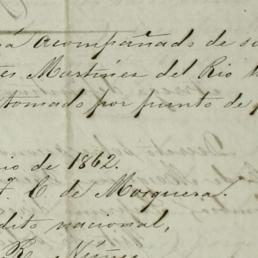 á acompañado de su
Martínes del Rio
tomado por punto de
io de 1862.
C. de Mosquera.
dito nacional,
R. Núñez